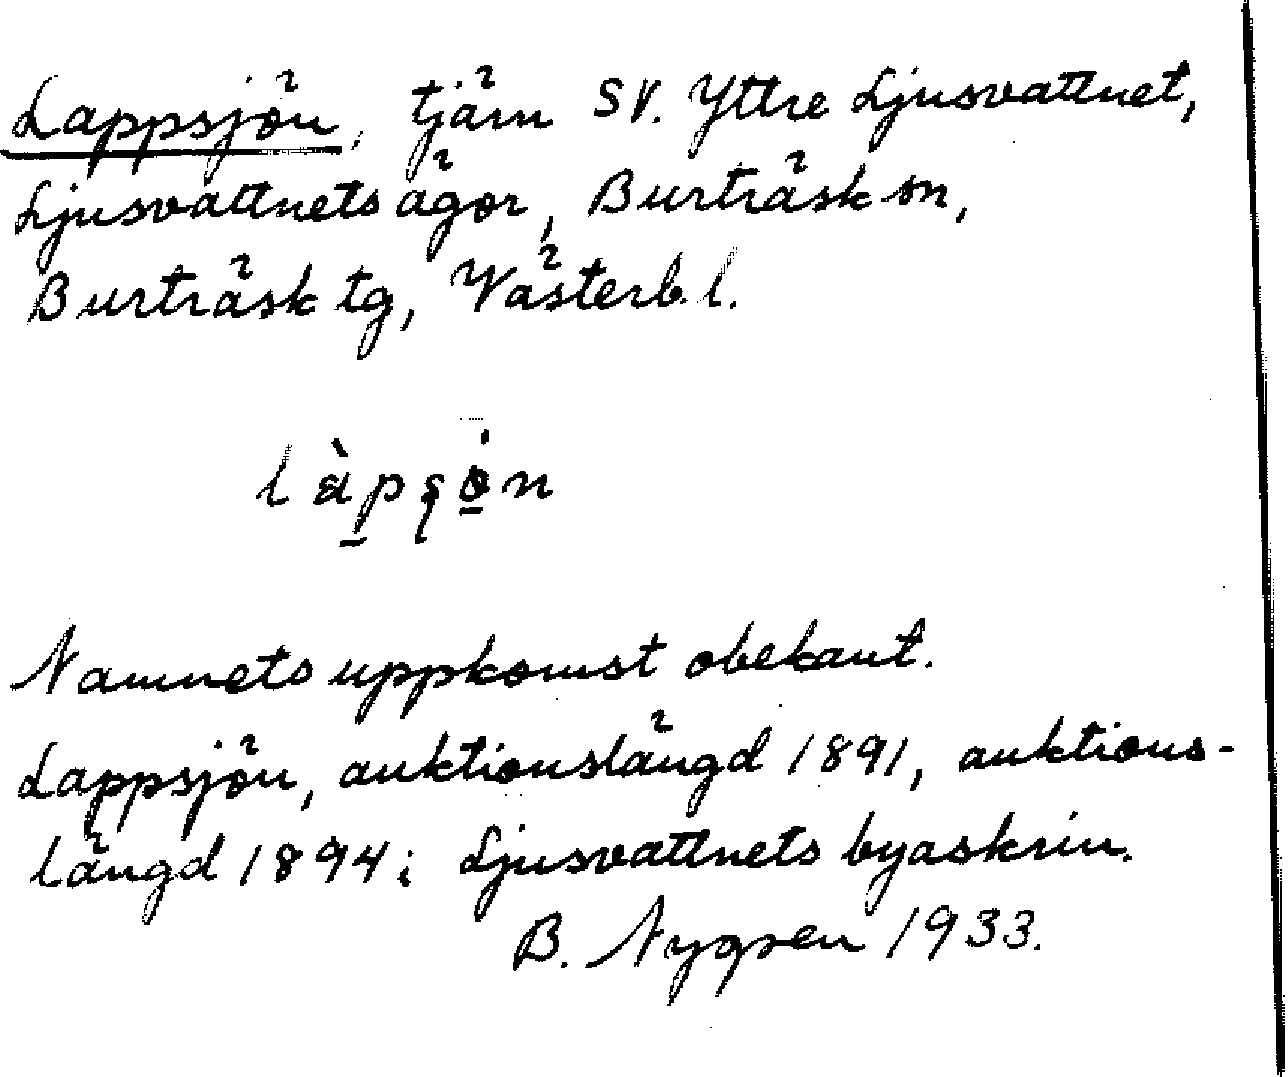 Lappsjön, tjärn SV. Yttre Ljusvattnet,
Ljusvattnets ägor, Burträsk sn,
Burträsk tg, Västerb. l.
Namnets uppkomst obekant.
Lappsjön, auktionslängd 1891, auktions-
längd 1894 i Ljusvattnets byaskrin.
B. Nygren 1933.